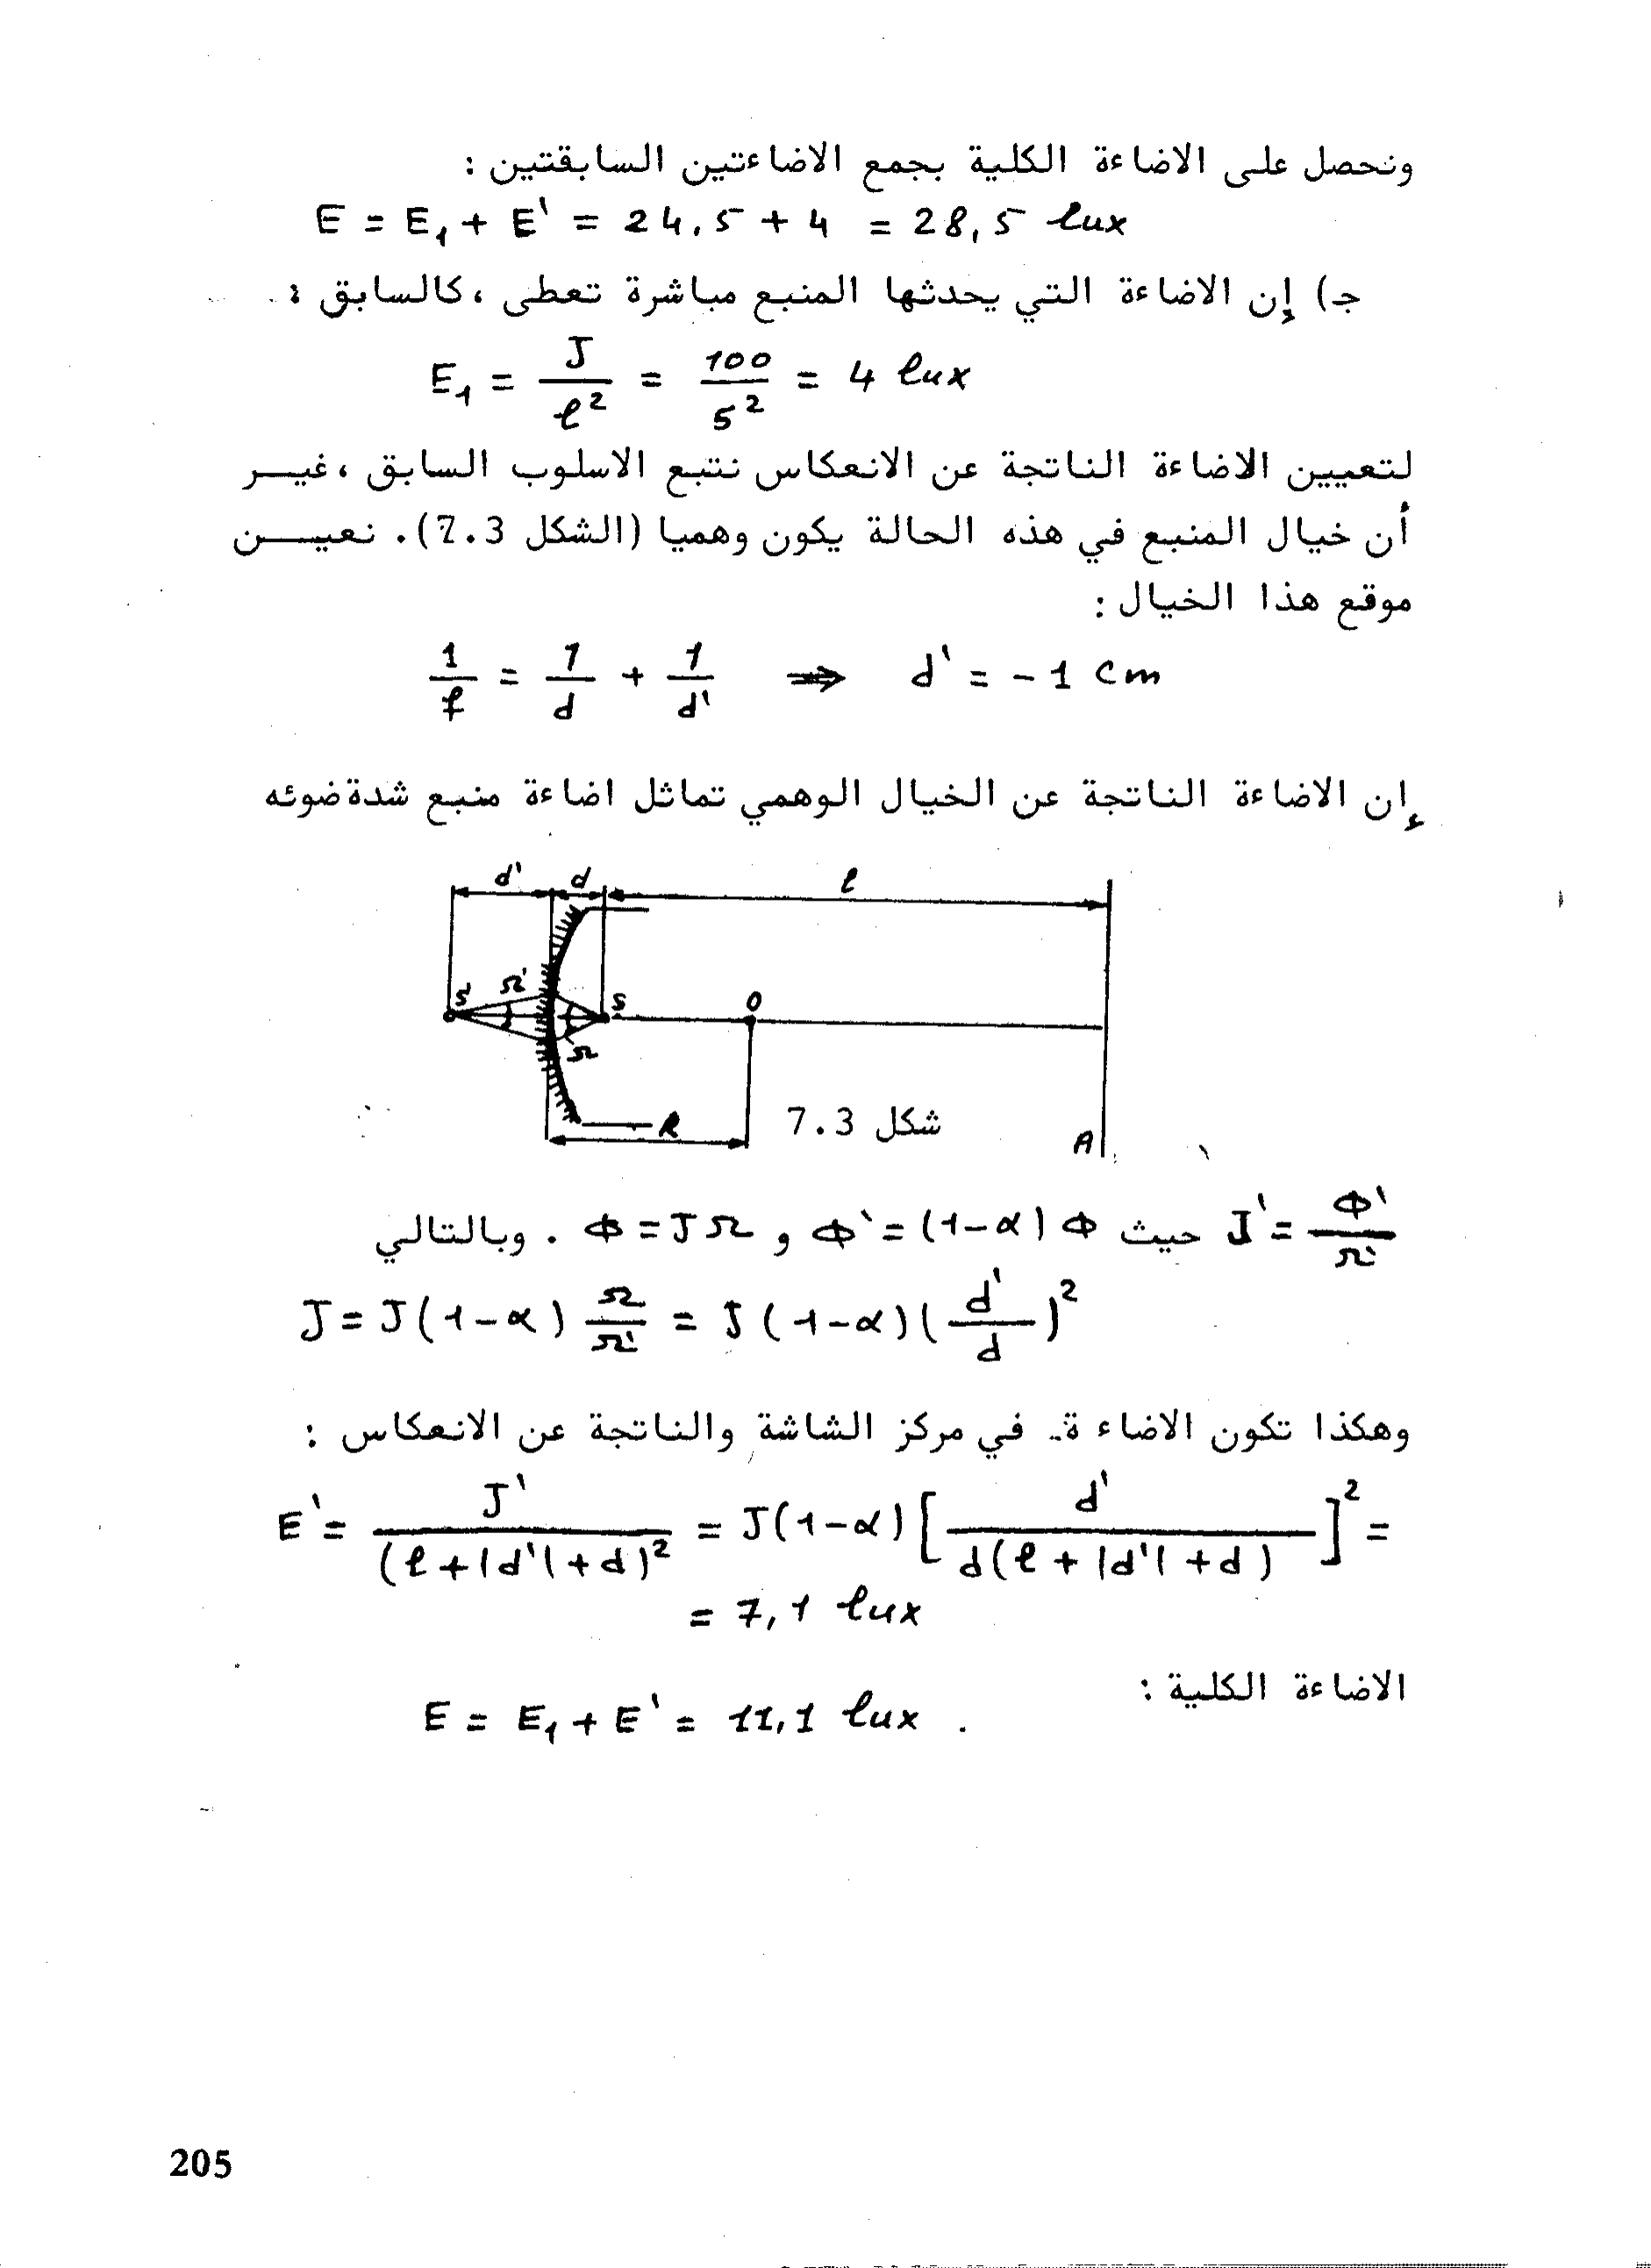 ونحصل على الاضاءة الكلية بجمع الاضاءتين السابقتين :
E = E₁ + E' = 24,5 + 4 = 28,5 lux
ج) إن الاضاءة التي يحدثها المنبع مباشرة تعطى ،كالسابق :
E₁ = J / l² = 100 / 5² = 4 lux
لتعيين الاضاءة الناتجة عن الانعكاس نتبع الاسلوب السابق ،غيـــر
أن خيال المنبع في هذه الحالة يكون وهميا (الشكل 7.3). نعيـــن
موقع هذا الخيال :
1/f = 1/d + 1/d' ⇒ d' = - 1 cm
إن الاضاءة الناتجة عن الخيال الوهمي تماثل اضاءة منبع شدة ضوئه
d' d l
S' Ω' S O
Ω
R شكل 7.3 A
J' = Φ'/Ω' حيث Φ' = (1-α) Φ و Φ = J Ω . وبالتالي
J = J (1-α) Ω/Ω' = J (1-α) (d'/d)²
وهكذا تكون الاضاء ة في مركز الشاشة والناتجة عن الانعكاس :
E' = J' / (l + |d'| + d)² = J(1-α) [ d' / d(l + |d'| + d) ]² =
= 7,1 lux
الاضاءة الكلية :
E = E₁ + E' = 11,1 lux .
205